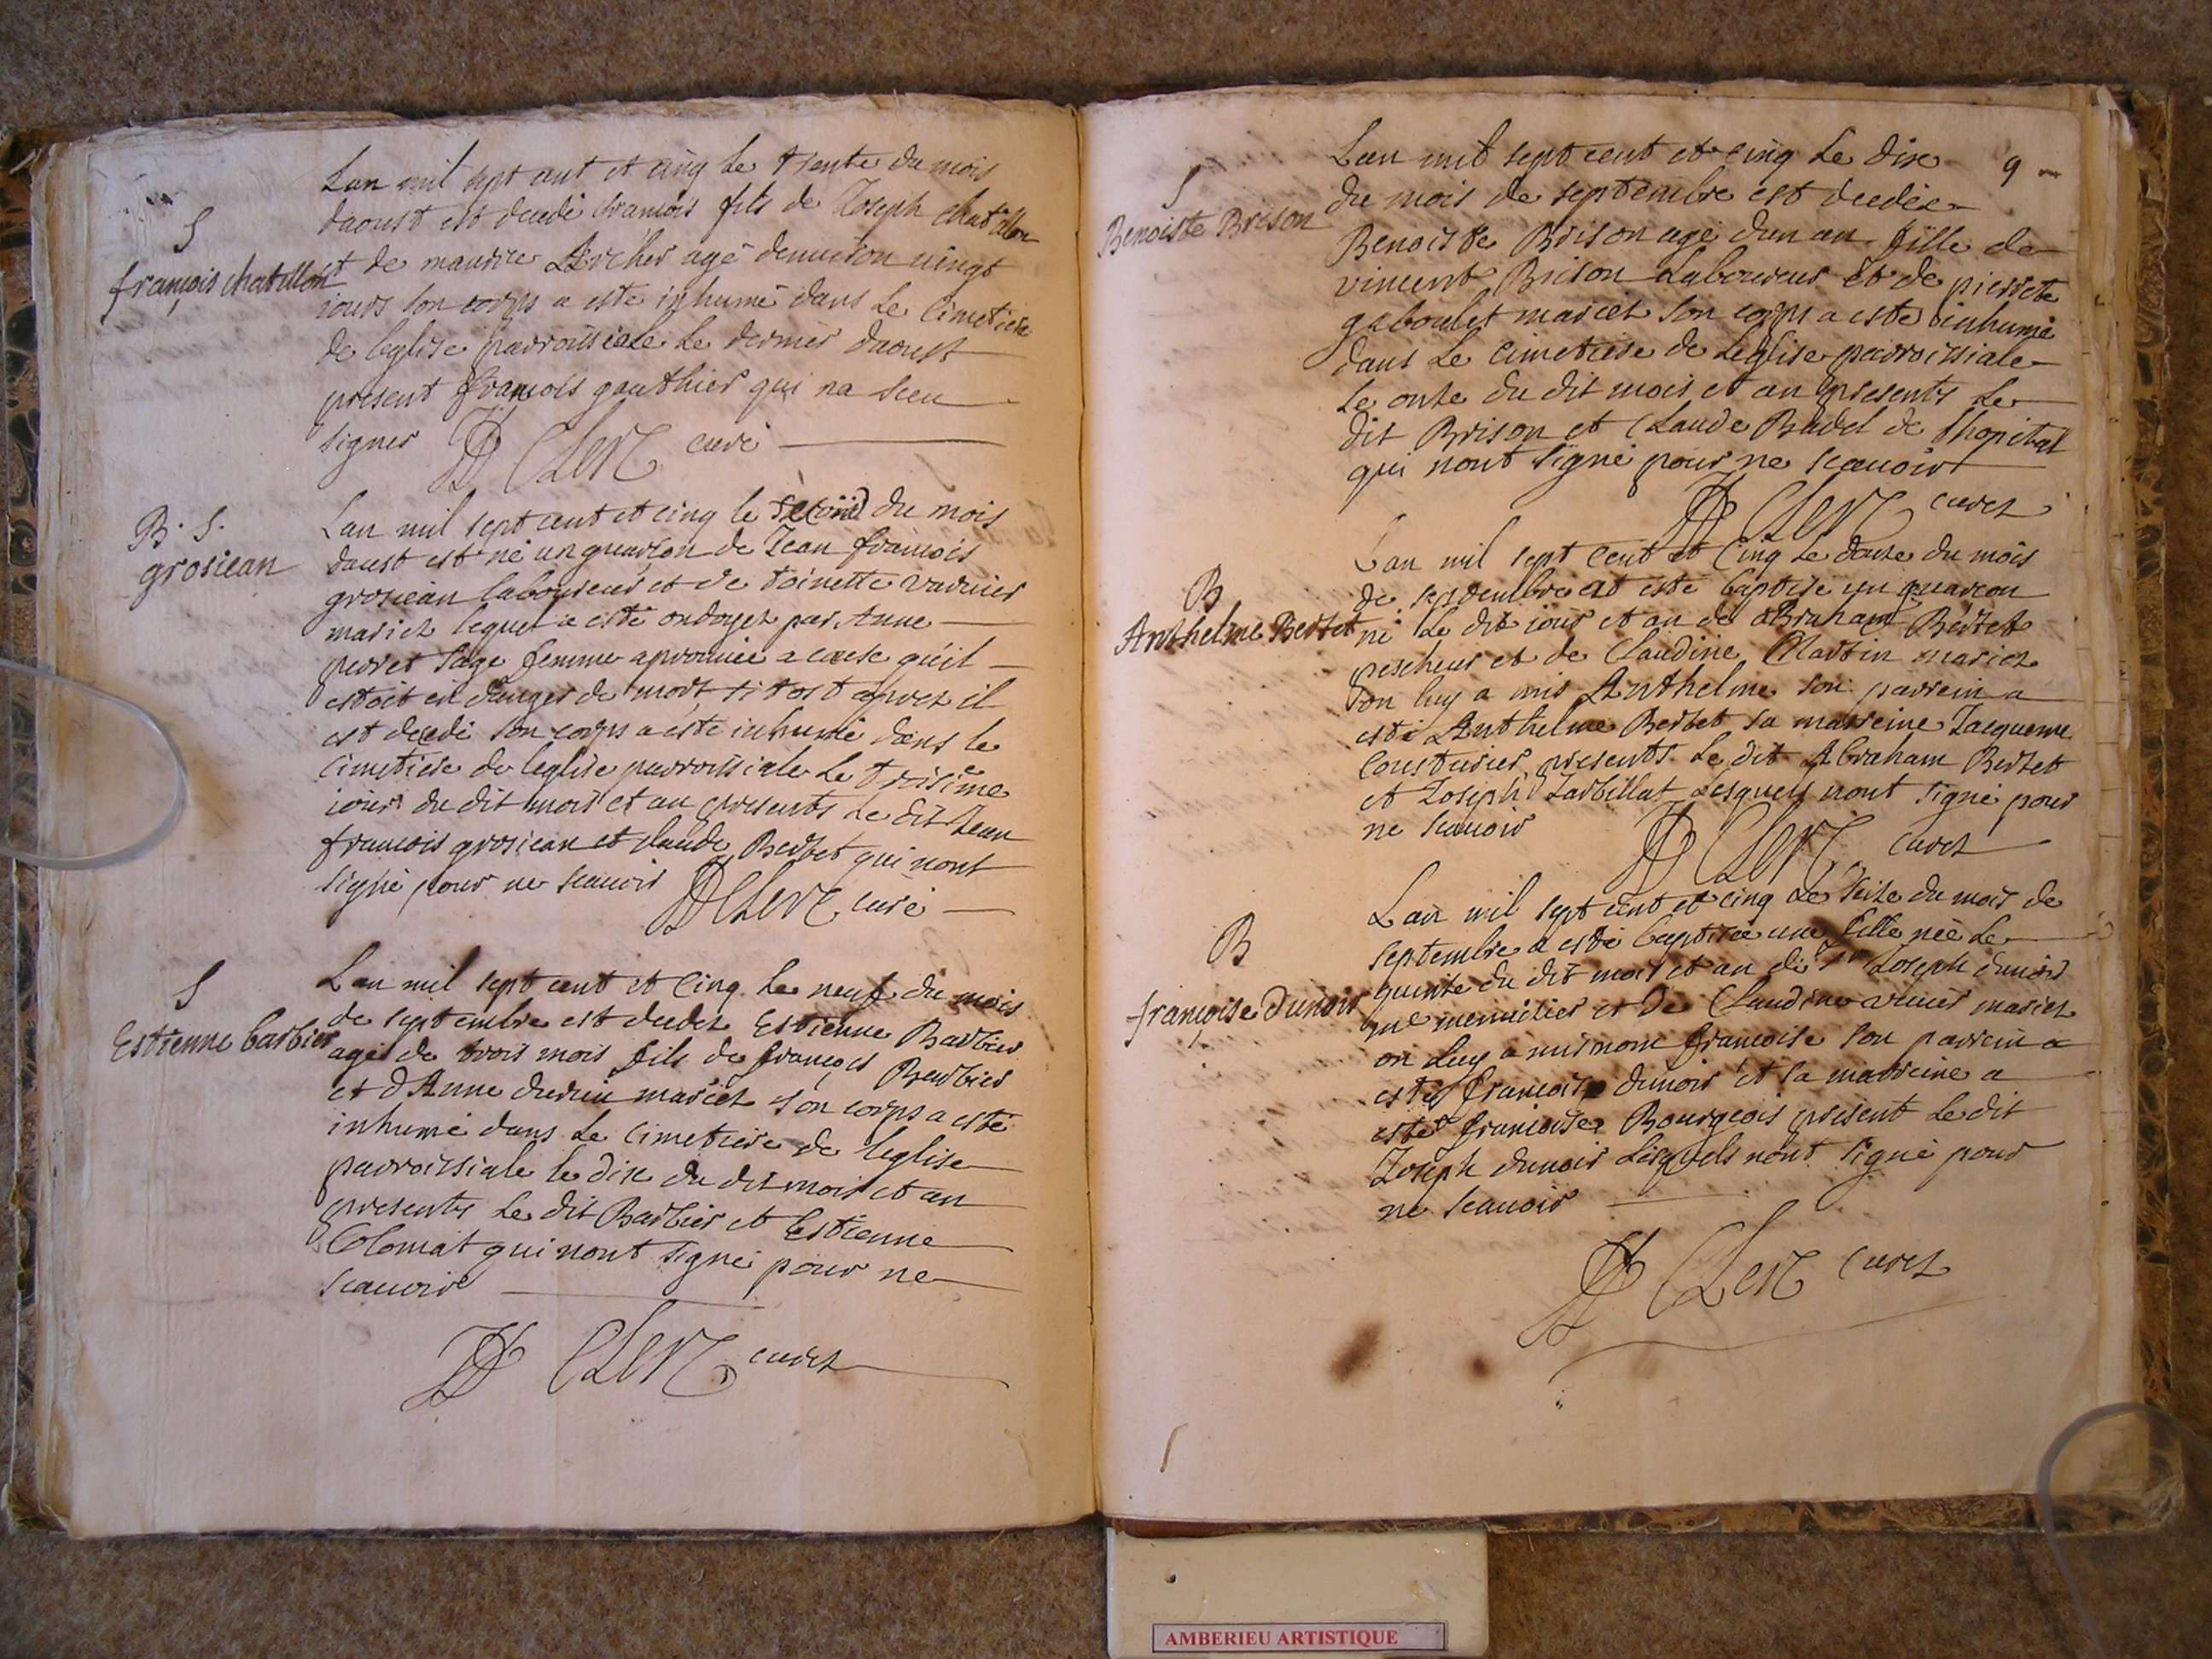 S
françois chatillon
Lan mil sept cent et cinq le trente du mois
daoust est decedé francois fils de Joseph chatillon
et de maurice Archer agé denuiron uingt
iours son corps a este inhumé dans le Cimetiere
de leglise parroissiale le dernier daoust
present francois gauthier qui na sceu
signer Clerc curé
B. S.
grosiean
Lan mil sept cent et cinq le second du mois
daust est né un guarcon de Jean francois
grosiean laboureur et de toinette
mariez lequel a esté ondoyez par Anne
perret sage femme aprouuée a cause quil
estoit en danger de mort, si tost aprez il
est decedé son corps a esté inhumé dans le
Cimetiere de leglise parroissiale le troisième
iour du dit mois et an presents le dit Jean
francois grosiean et claude Bertet qui nont
signé pour ne scauoir Clerc curé
S
Estienne barbier
Lan mil sept cent et cinq le neuf du mois
de septembre est decedez Estienne Barbier
agé de trois mois fils de françois Barbier
et dAnne mariez son corps a esté
inhumé dans le cimetiere de leglise
parroissiale le dix du dit mois et an
presents le dit Barbier et Estienne
Colomat qui nont signé pour ne
scauoir
Clerc curez
9
S
Benoiste Brison
Lan mil sept cent et cinq le dix
du mois de septembre est decedée
Benoiste Brison agé dun an fille de
vincent Brison Laboureur et de pierrete
gaboulet mariez son corps a esté inhumé
dans le cimetiere de leglise parroissiale
le onze du dit mois et an presents le
dit Brison et Claude Badel de lhopital
qui nont signé pour ne scauoir
Clerc curez
B
Anthelme Bertet
Lan mil sept cent et cinq le douze du mois
de septembre at esté baptisé un guarcon
né le dit iour et an de Abraham Bertet
pescheur et de Claudine Martin mariez
on luy a mis Anthelme son parrein a
esté Anthelme Bertet sa marreine Jacqueme
Cousturier presents le dit Abraham Bertet
et Joseph Jarbillat Lesquels nont signé pour
ne scauoir Clerc curez
B
françoise dunois
Lan mil sept cent et cinq le seize du mois de
septembre a esté baptisée une fille née le
quinze du dit mois et an de Joseph dunois
menuisier et de Claudine mariez
on luy a mis nom francoise son parrein a
esté francois dunois et sa marreine a
esté francoise Bourgeois present le dit
Joseph dunois Lesquels nont signé pour
ne scauoir
Clerc curez
AMBERIEU ARTISTIQUE